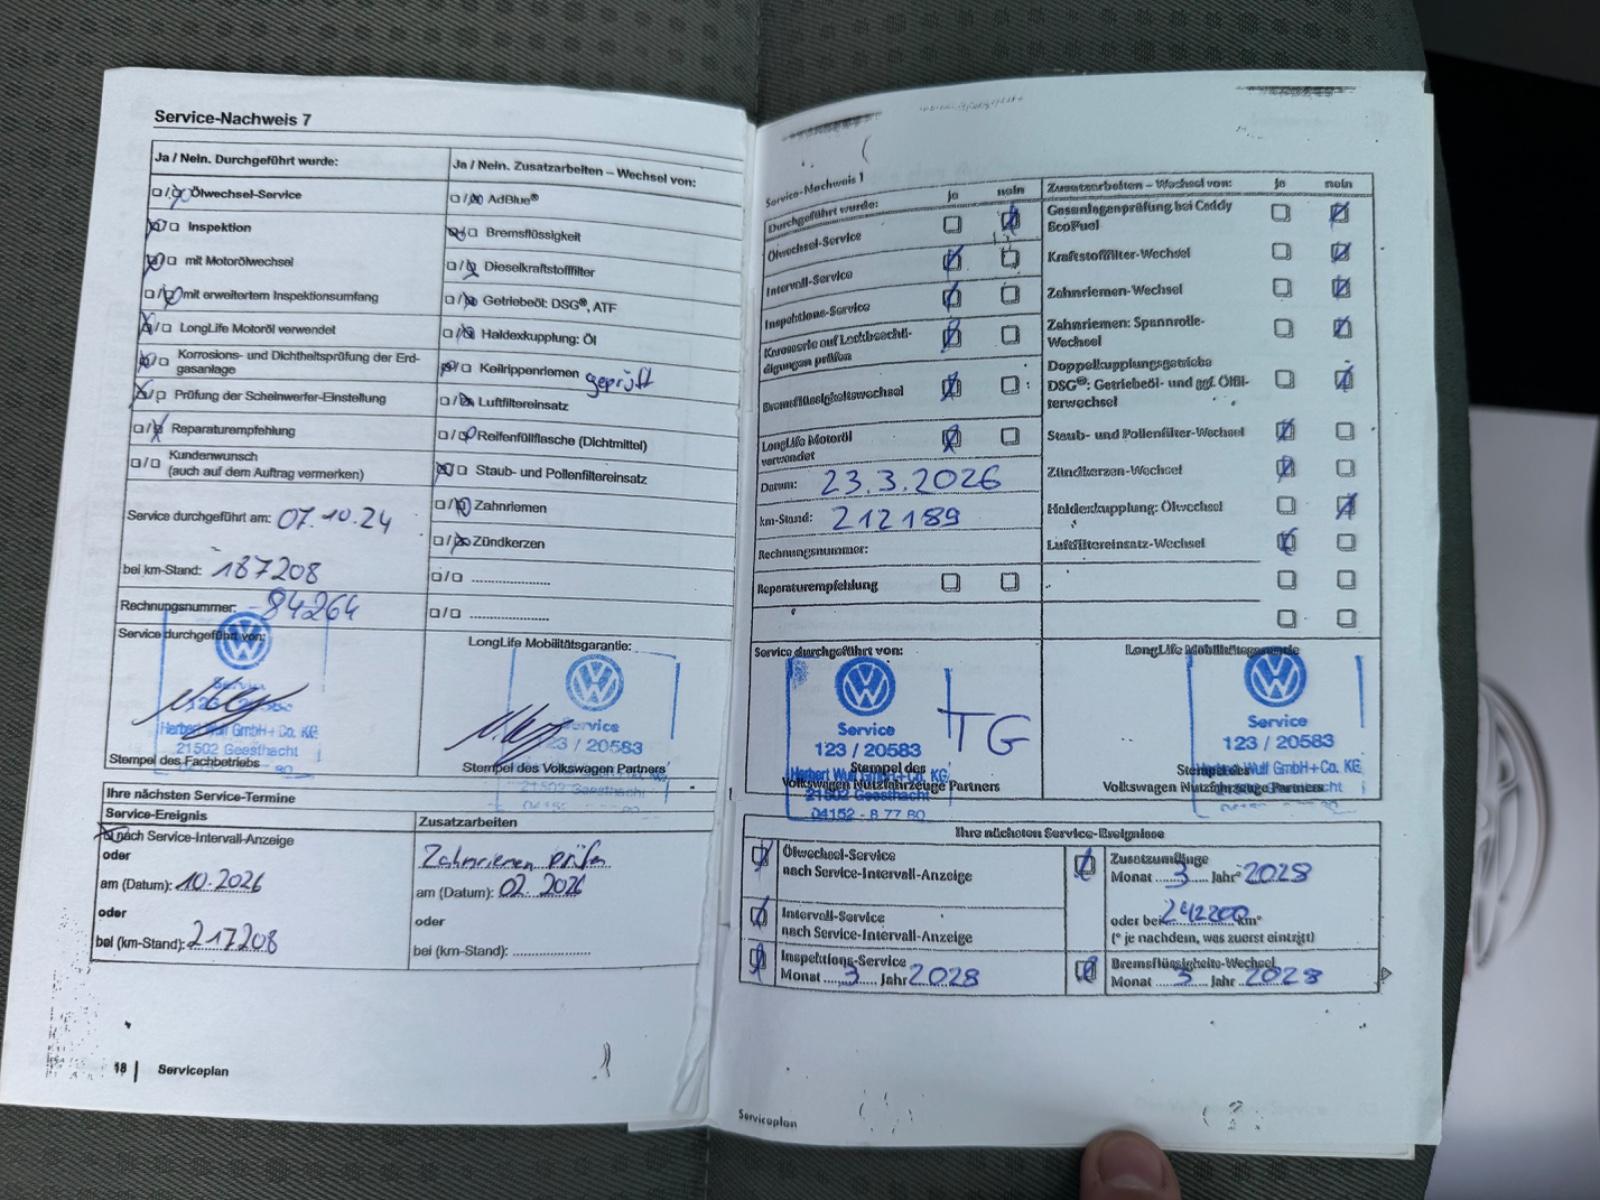 Service-Nachweis 7
Ja / Nein. Durchgeführt wurde:
Ölwechsel-Service
Inspektion
mit Motorölwechsel
mit erweitertem Inspektionsumfang
LongLife Motoröl verwendet
Korrosions- und Dichtheitsprüfung der Erd-
gasanlage
Prüfung der Scheinwerfer-Einstellung
Reparaturempfehlung
Kundenwunsch
(auch auf dem Auftrag vermerken)
Service durchgeführt am: 07.10.24
bei km-Stand: 187208
Rechnungsnummer: 84264
Service durchgeführt von:
Herbert Wulf GmbH+Co. KG
21502 Geesthacht
Stempel des Fachbetriebs
Ja / Nein. Zusatzarbeiten – Wechsel von:
AdBlue®
Bremsflüssigkeit
Dieselkraftstofffilter
Getriebeöl: DSG®, ATF
Haldexkupplung: Öl
Keilrippenriemen geprüft
Luftfiltereinsatz
Reifenfüllflasche (Dichtmittel)
Staub- und Pollenfiltereinsatz
Zahnriemen
Zündkerzen
LongLife Mobilitätsgarantie:
Service
123 / 20583
Stempel des Volkswagen Partners
Ihre nächsten Service-Termine
Service-Ereignis
nach Service-Intervall-Anzeige
oder
am (Datum): 10.2026
oder
bei (km-Stand): 217208
Zusatzarbeiten
Zahnriemen prüfen
am (Datum): 02 2026
oder
bei (km-Stand):
18 | Serviceplan
Service-Nachweis 1
Durchgeführt wurde: ja nein
Ölwechsel-Service
Intervall-Service
Inspektions-Service
Karosserie auf Lackbeschä-
digungen prüfen
Bremsflüssigkeitswechsel
LongLife Motoröl
verwendet
Datum: 23.3.2026
km-Stand: 212189
Rechnungsnummer:
Reparaturempfehlung
Zusatzarbeiten – Wechsel von: ja nein
Gasanlagenprüfung bei Caddy
EcoFuel
Kraftstofffilter-Wechsel
Zahnriemen-Wechsel
Zahnriemen: Spannrolle-
Wechsel
Doppelkupplungsgetriebe
DSG®: Getriebeöl- und ggf. Ölfil-
terwechsel
Staub- und Pollenfilter-Wechsel
Zündkerzen-Wechsel
Haldexkupplung: Ölwechsel
Luftfiltereinsatz-Wechsel
Service durchgeführt von:
Service
123 / 20583
Herbert Wulf GmbH+Co. KG
21502 Geesthacht
04152 - 8 77 80
TG
Stempel des
Volkswagen Nutzfahrzeuge Partners
LongLife Mobilitätsgarantie
Service
123 / 20583
Herbert Wulf GmbH+Co. KG
Stempel des
Volkswagen Nutzfahrzeuge Partners
Ihre nächsten Service-Ereignisse
Ölwechsel-Service
nach Service-Intervall-Anzeige
Intervall-Service
nach Service-Intervall-Anzeige
Inspektions-Service
Monat 3 Jahr 2028
Zusatzumfänge
Monat 3 Jahr* 2028
oder bei 242200 km*
(* je nachdem, was zuerst eintritt)
Bremsflüssigkeits-Wechsel
Monat 3 Jahr 2028
Serviceplan